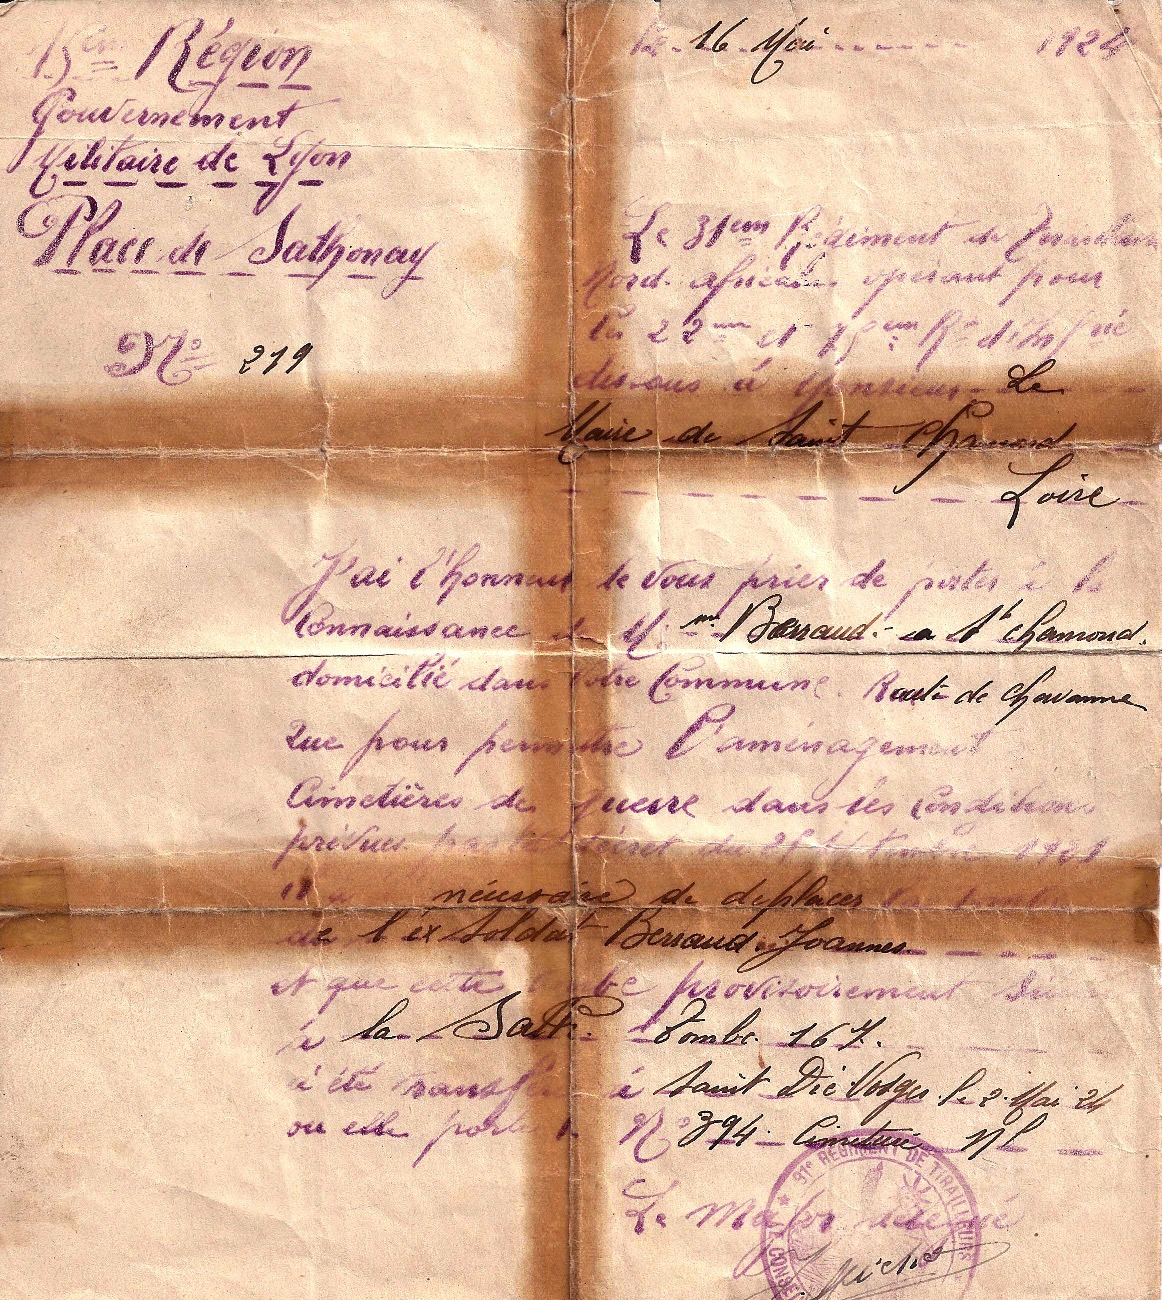 Région
Gouvernement
Militaire de Lyon
Place de Sathonay
No 219
Le 16 Mai 1924
Le 31em Régiment de
Nord-africains opérant pour
les 22em et Rt d'Infrie
dissous à Monsieur Le
Maire de Saint Chamond
Loire
J'ai l'honneur de vous prier de porter à la
Connaissance de Mme Berraud - a St Chamond.
domicilié dans votre Commune. Route de Chavanne
Que pour permettre l'aménagement
Cimetières de guerre dans les conditions
prévues par le décret du 25 Septembre
Il a nécessaire de déplacer la tombe
de l'éx Soldat Berraud Joannes
et que cette tombe provisoirement
à la Salle Tombe 167.
a été transférée à Saint Dié Vosges le 2 Mai 24
ou elle porte le No 394 Cimetière Nl
Le Major délégué
91e RÉGIMENT DE TIRAILLEURS